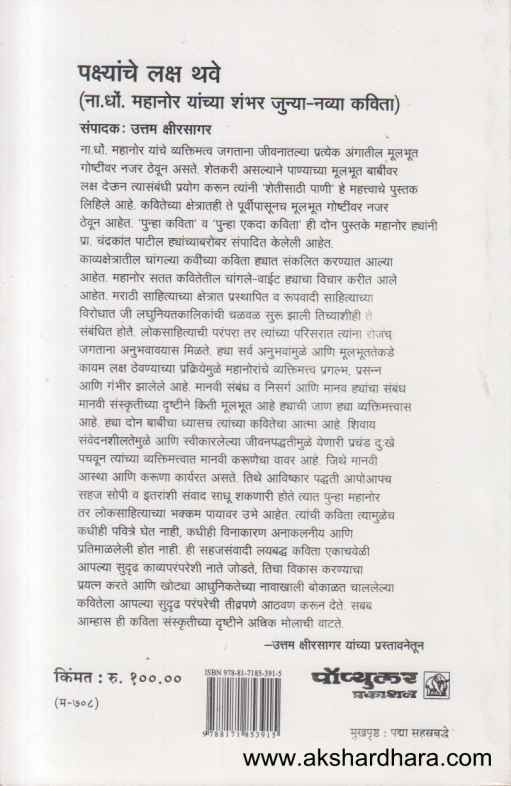 पक्ष्यांचे लक्ष थवे
(ना.धों. महानोर यांच्या शंभर जुन्या-नव्या कविता)
संपादक: उत्तम क्षीरसागर
ना.धों. महानोर यांचे व्यक्तिमत्व जगताना जीवनातल्या प्रत्येक अंगातील मूलभूत
गोष्टींवर नजर ठेवून असते. शेतकरी असल्याने पाण्याच्या मूलभूत बाबींवर
लक्ष देऊन त्यासंबंधी प्रयोग करून त्यांनी 'शेतीसाठी पाणी' हे महत्त्वाचे पुस्तक
लिहिले आहे. कवितेच्या क्षेत्रातही ते पूर्वीपासूनच मूलभूत गोष्टींवर नजर
ठेवून आहेत. 'पुन्हा कविता' व 'पुन्हा एकदा कविता' ही दोन पुस्तके महानोर ह्यांनी
प्रा. चंद्रकांत पाटील ह्यांच्याबरोबर संपादित केलेली आहेत.
काव्यक्षेत्रातील चांगल्या कवींच्या कविता ह्यात संकलित करण्यात आल्या
आहेत. महानोर सतत कवितेतील चांगले-वाईट ह्याचा विचार करीत आले
आहेत. मराठी साहित्याच्या क्षेत्रात प्रस्थापित व रूपवादी साहित्याच्या
विरोधात जी लघुनियतकालिकांची चळवळ सुरू झाली तिच्याशीही ते
संबंधित होते. लोकसाहित्याची परंपरा तर त्यांच्या परिसरात त्यांना रोजच
जगताना अनुभवावयास मिळते. ह्या सर्व अनुभवांमुळे आणि मूलभूततेकडे
कायम लक्ष ठेवण्याच्या प्रक्रियेमुळे महानोरांचे व्यक्तिमत्त्व प्रगल्भ, प्रसन्न
आणि गंभीर झालेले आहे. मानवी संबंध व निसर्ग आणि मानव ह्यांचा संबंध
मानवी संस्कृतीच्या दृष्टीने किती मूलभूत आहे ह्याची जाण ह्या व्यक्तिमत्त्वास
आहे. ह्या दोन बाबींचा ध्यासच त्यांच्या कवितेचा आत्मा आहे. शिवाय
संवेदनशीलतेमुळे आणि स्वीकारलेल्या जीवनपद्धतीमुळे येणारी प्रचंड दु:खे
पचवून त्यांच्या व्यक्तिमत्त्वात मानवी करूणेचा वावर आहे. जिथे मानवी
आस्था आणि करूणा कार्यरत असते. तिथे आविष्कार पद्धती आपोआपच
सहज सोपी व इतरांशी संवाद साधू शकणारी होते त्यात पुन्हा महानोर
तर लोकसाहित्याच्या भक्कम पायावर उभे आहेत. त्यांची कविता त्यामुळेच
कधीही पवित्रे घेत नाही, कधीही विनाकारण अनाकलनीय आणि
प्रतिमाळलेली होत नाही. ही सहजसंवादी लयबद्ध कविता एकाचवेळी
आपल्या सुदृढ काव्यपरंपरेशी नाते जोडते, तिचा विकास करण्याचा
प्रयत्न करते आणि खोट्या आधुनिकतेच्या नावाखाली बोकाळत चाललेल्या
कवितेला आपल्या सुदृढ परंपरेची तीव्रपणे आठवण करून देते. सबब
आम्हास ही कविता संस्कृतीच्या दृष्टीने अधिक मोलाची वाटते.
–उत्तम क्षीरसागर यांच्या प्रस्तावनेतून
किंमत : रु. १००.००
(म-७०८)
ISBN 978-81-7185-391-5
9788171853915
पॉप्युलर
प्रकाशन
मुखपृष्ठ : पद्मा सहस्रबुद्धे
www.akshardhara.com